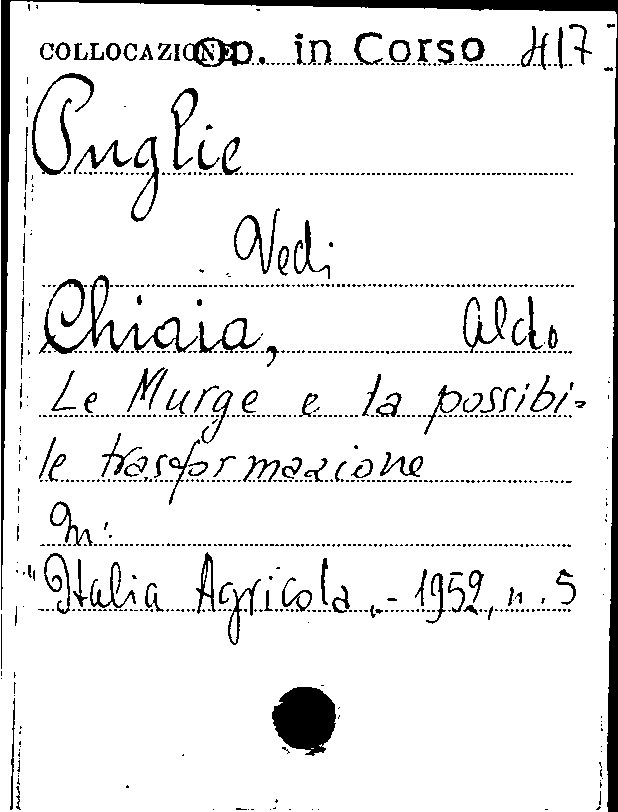 COLLOCAZIONE Op. in Corso 417
Puglie
Vedi
Chiaia, Aldo
Le Murge e la possibi=
le trasformazione
In:
"Italia Agricola,, - 1952, n. 5